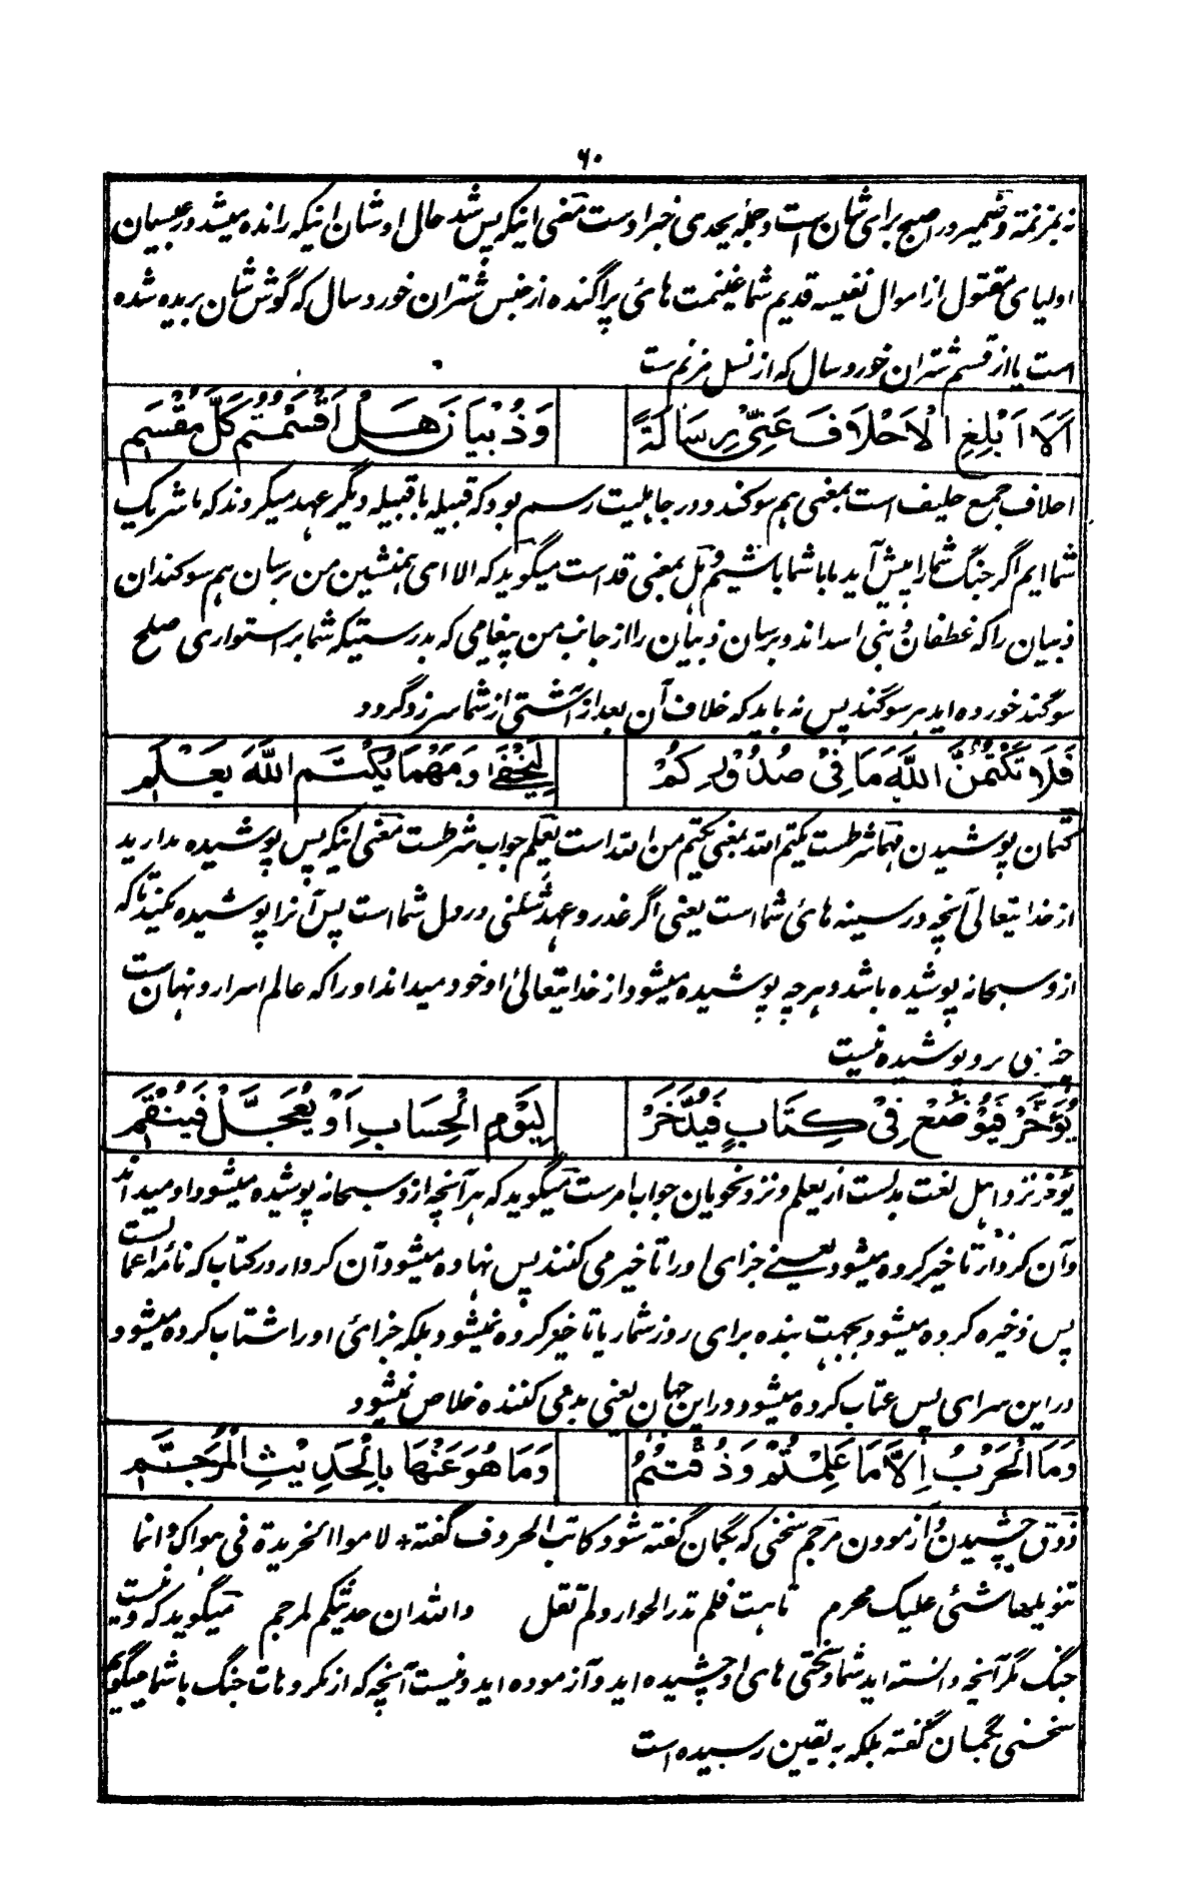 ۶۰
نه بمزنمة و ضمیر در اصبح برای شان است و جمله یحدی خبر اوست معنی اینکه پس شد حال او شان اینکه رانده میشد در میان
اولیای مقتول از اموال نفیسه قدیم شما غنیمت های پراگنده از جنس شتران خورد سال که گوش شان بریده شده
است یا از قسم شتران خورد سال که از نسل مزنم ست
اَلَا اَبْلِغِ الْاَحْلَافَ عَنِّیْ رِسَالَةً وَذُبْیَانَ هَلْ اَقْسَمْتُمْ کُلَّ مُقْسَمِ
احلاف جمع حلیف است بمعنی هم سوکند و در جاهلیت رسم بود که قبیله با قبیله دیگر عهد میکردند که ما شریک
شما ایم اگر جنگ شما را پیش آید ما با شما باشیم و هل بمعنی قد است میگوید که الا ای همنشین من برسان هم سوکندان
ذبیان را که غطفان و بنی اسد اند و برسان ذبیان را از جانب من پیغامی که بدرستیکه شما بر استواری صلح
سوگند خورده اید هر سوگند پس نه باید که خلاف آن بعد از آشتی از شما سرزد گردد
فَلَا تَکْتُمُنَّ اللّٰهَ مَا فِیْ صُدُوْرِکُمْ لِیَخْفٰی وَمَهْمَا یُکْتَمِ اللّٰهُ یَعْلَمِ
کتمان پوشیدن مهما شرطست یکتم الله بمعنی یکتم من الله است یعلم جواب شرطست معنی اینکه پس پوشیده مدارید
از خدایتعالی آنچه در سینه های شما است یعنی اگر غدر و عهد شکنی در دل شما است پس آنرا پوشیده مکنید تا که
از و سبحانه پوشیده باشد و هرچه پوشیده میشود از خدایتعالی او خود میداند او را که عالم اسرار و نهان ست
چیزی بر و پوشیده نیست
یُؤَخَّرْ فَیُوْضَعْ فِیْ کِتَابٍ فَیُدَّخَرْ لِیَوْمِ الْحِسَابِ اَوْ یُعَجَّلْ فَیُنْقَمِ
یؤخر نزد اهل لغت بدلست از یعلم و نزد نحویان جواب امرست میگوید که هر آنچه از و سبحانه پوشیده میشود او میداند
و آن کردار تاخیر کرده میشود یعنے جزای او را تاخیر می کنند پس نهاده میشود آن کردار در کتاب که نامه اعمالست
پس ذخیره کرده میشود بجهت بنده برای روز شمار یا تاخیر کرده نمیشود بلکه جزائی او را شتاب کرده میشود
در این سرای پس عتاب کرده میشود در این جهان یعنی بدی کننده خلاص نمیشود
وَمَا الْحَرْبُ اِلَّا مَا عَلِمْتُمْ وَذُقْتُمُ وَمَا هُوَ عَنْهَا بِالْحَدِیْثِ الْمُرَجَّمِ
ذوق چشیدن و آزمودن مرجم سخنی که بگمان گفته شود کاتب الحروف گفته + لاموا الخریدة فی هواک و انما
علیک محرم تاهت فلم تدر الحوار ولم تقل والله ان حدثیکم لمرجم میگوید که نیست
جنگ مگر آنچه دانسته اید شما و سختی های او چشیده اید و آزموده اید و نیست آنچه که از مکروهات جنگ با شما میگویم
سخنی بگمان گفته بلکه به یقین رسیده است